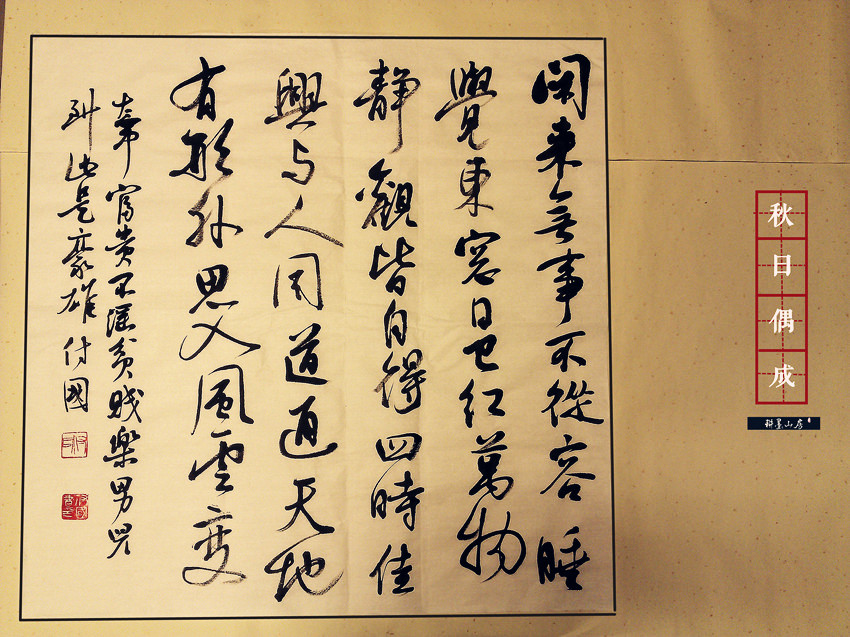 閑来無事不從容睡
覺東窓日已紅萬物
靜觀皆自得四時佳
興与人同道通天地
有形外思入風雲变
態富貴不淫貧賤樂男兒
到此是豪雄 付國
秋日偶成
耕墨山房